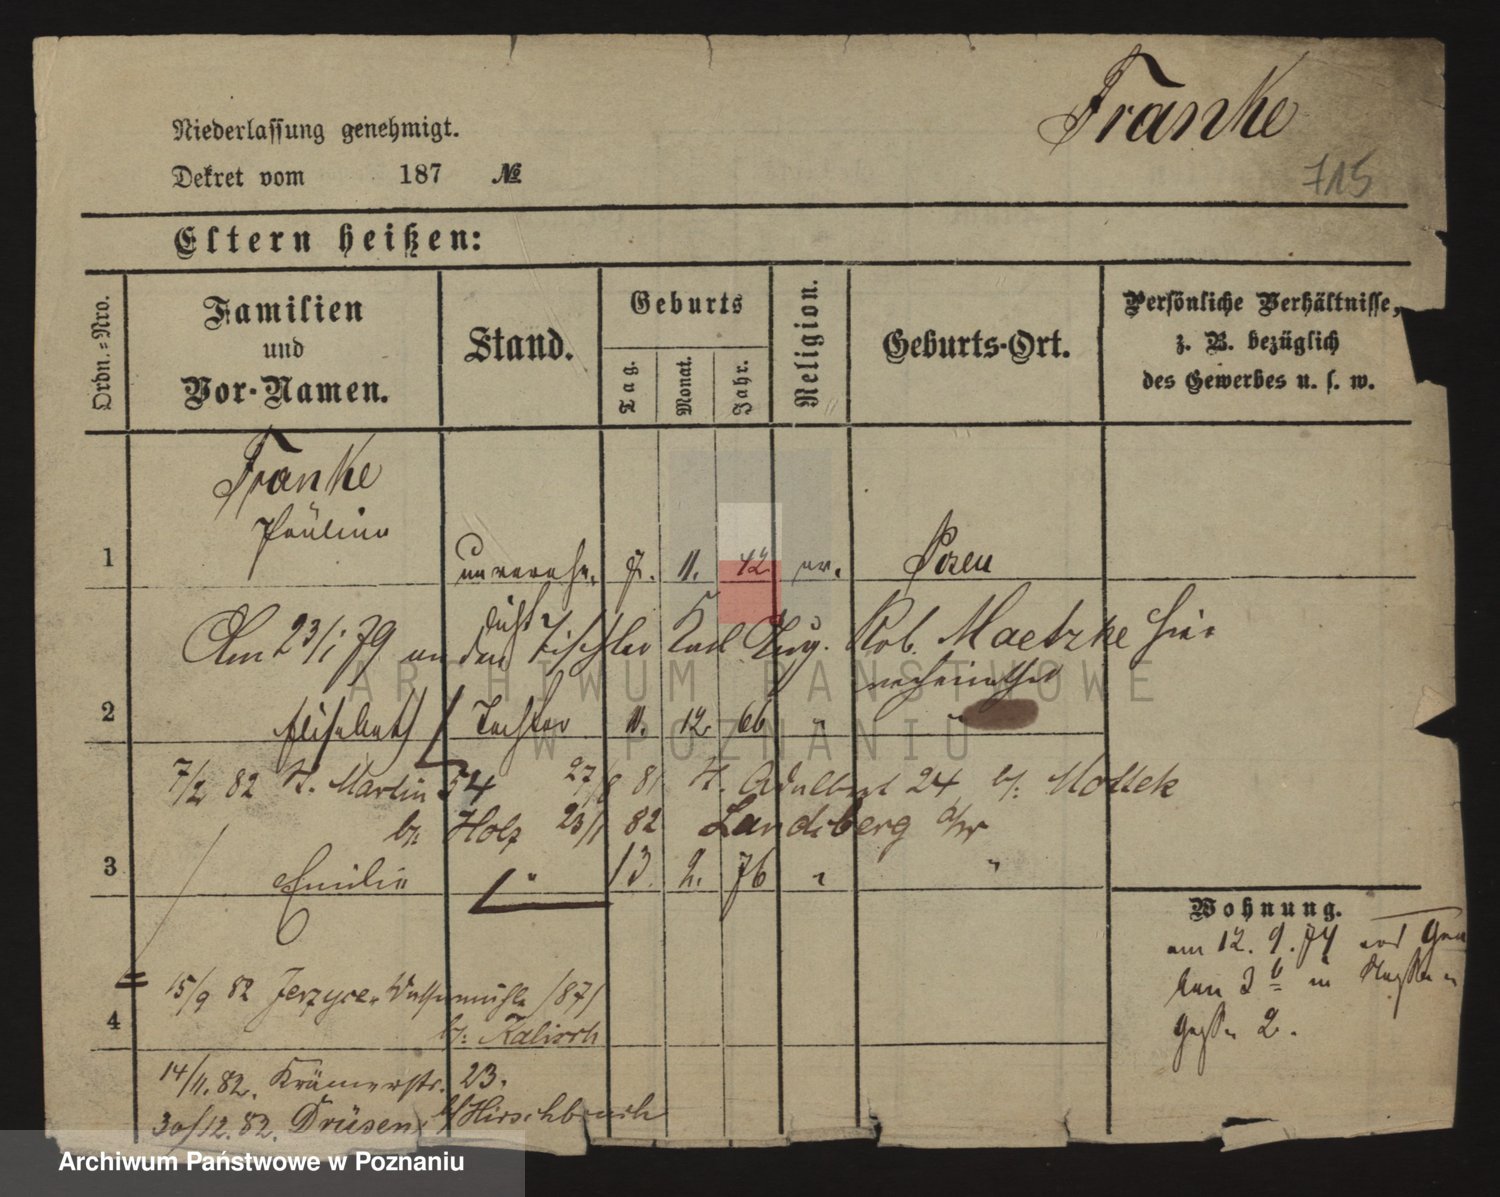 Franke
Niederlassung genehmigt.
Dekret vom 187 №
715
Eltern heißen:
Ordn.-Nro.
Familien und Vor-Namen.
Stand.
Geburts
Tag.
Monat.
Jahr.
Religion.
Geburts-Ort.
Persönliche Verhältnisse,
z. B. bezüglich
des Gewerbes u. s. w.
Franke
Pauline
1 unverehe. 7. 11. 42 ev. Posen
Am 23/1 79 an den Tischler Karl Aug. Rob. Maetzke hier
2 Elisabeth Tochter 11. 12. 66 "
7/2 82 St. Martin 54 27/8 81 St. Adalbert 24 b/: Mottek
b/: Holz 23/1 82 Landsberg a/W
3 Emilie " 13. 2. 76 " "
Wohnung.
am 12. 9. 74
15/9 82 Jerzyce, /87/
4 b/: Kalisch
14/11. 82. Krämerstr. 23.
30/12. 82. Drüsen b/ Hirschbruch
2.
ARCHIWUM PAŃSTWOWE
W POZNANIU
Archiwum Państwowe w Poznaniu